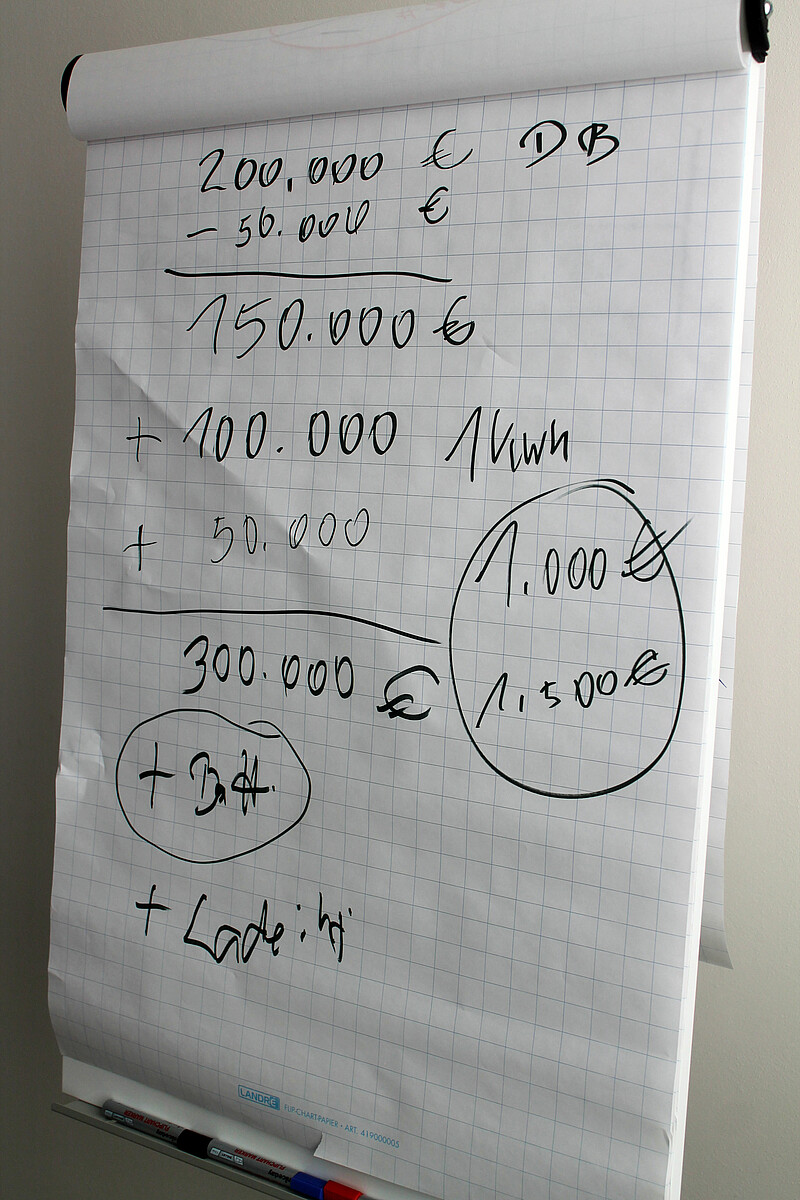 200.000 € DB
- 50.000 €
150.000 €
+ 100.000 1 kwh
+ 50.000
1.000 €
300.000 €
1.500 €
+ Batt.
+ Lade
LANDRÉ FLIP-CHARTPAPIER • ART. 419000005